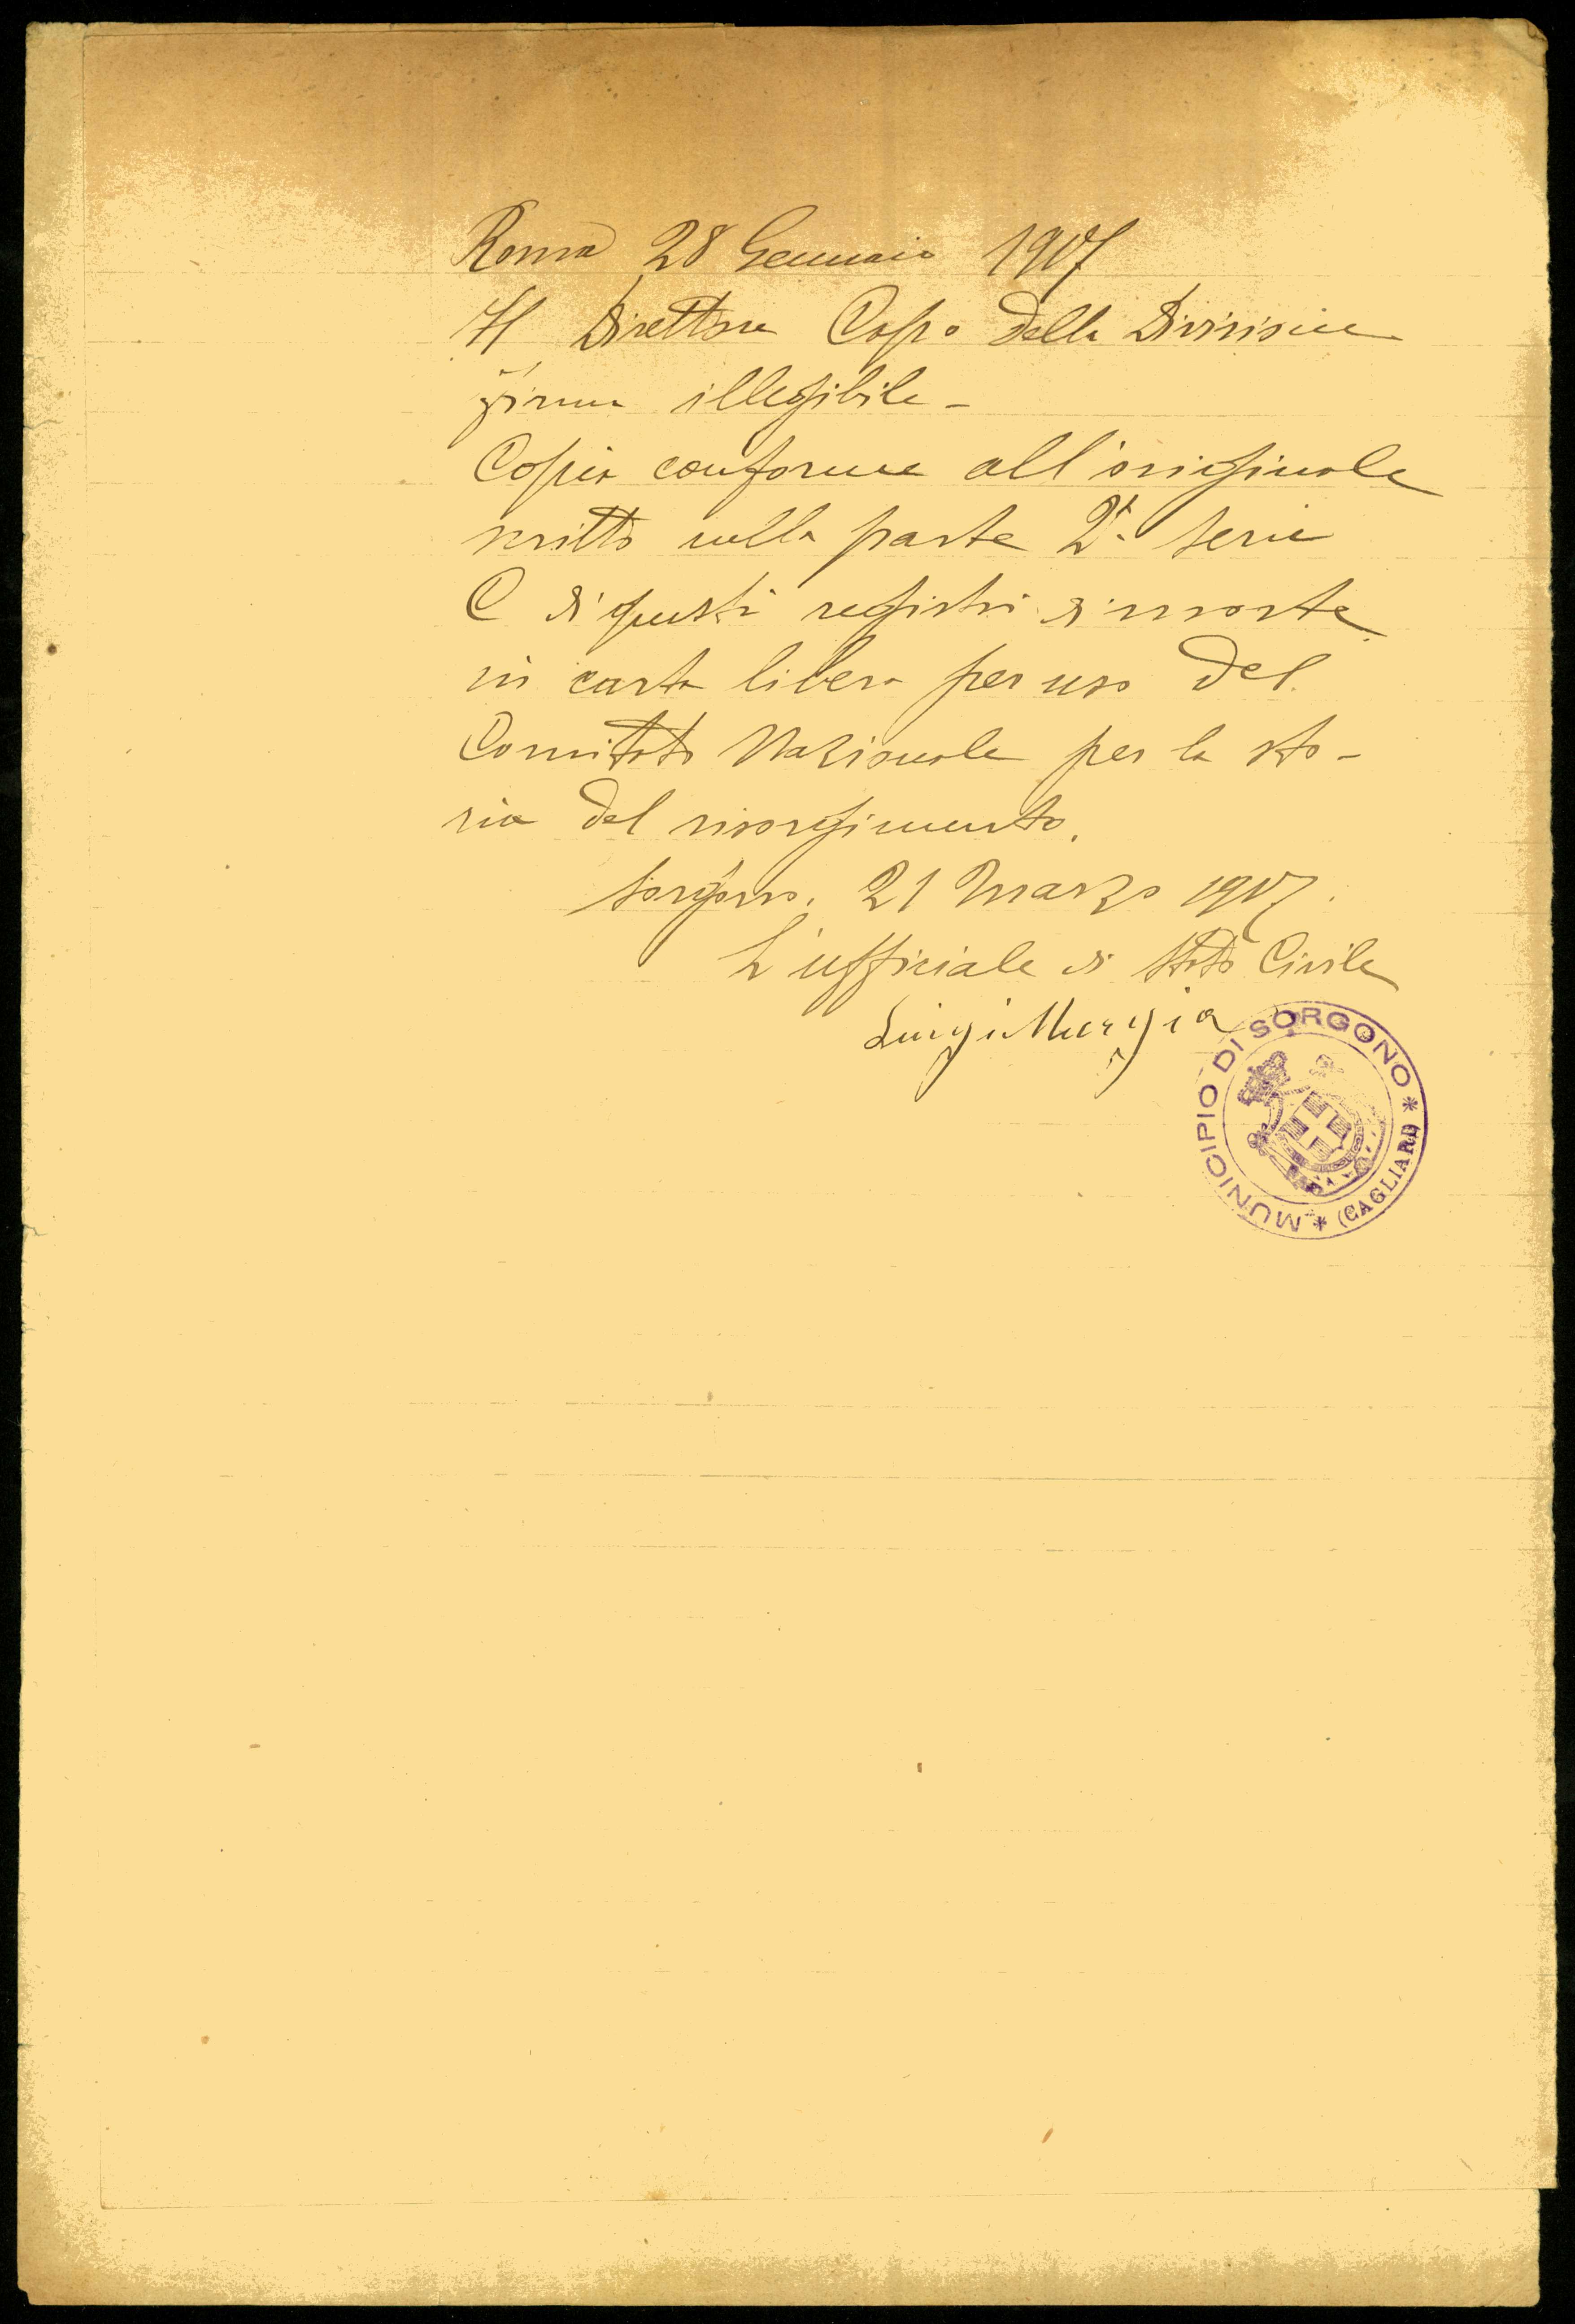 Roma 28 Gennaio 1917
Il Direttore Capo della Divisione
firma illegibile -
Copia conforme all'originale
scritto nella parte 2ª serie
C di questi registri di morte
in carta libera per uso del
Comitato Nazionale per la sto-
ria del risorgimento.
Sorgono, 21 Marzo 1917.
L'ufficiale di Stato Civile
Luigi Murgia
MUNICIPIO DI SORGONO * (CAGLIARI) *